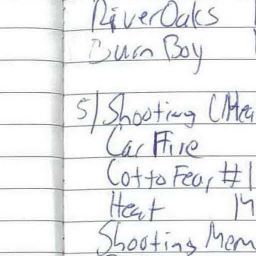 RiverOaks
Burn Boy
5/ Shooting (Hea
Car Fire
Cotto Fear #1
Heat 14
Shooting Mem